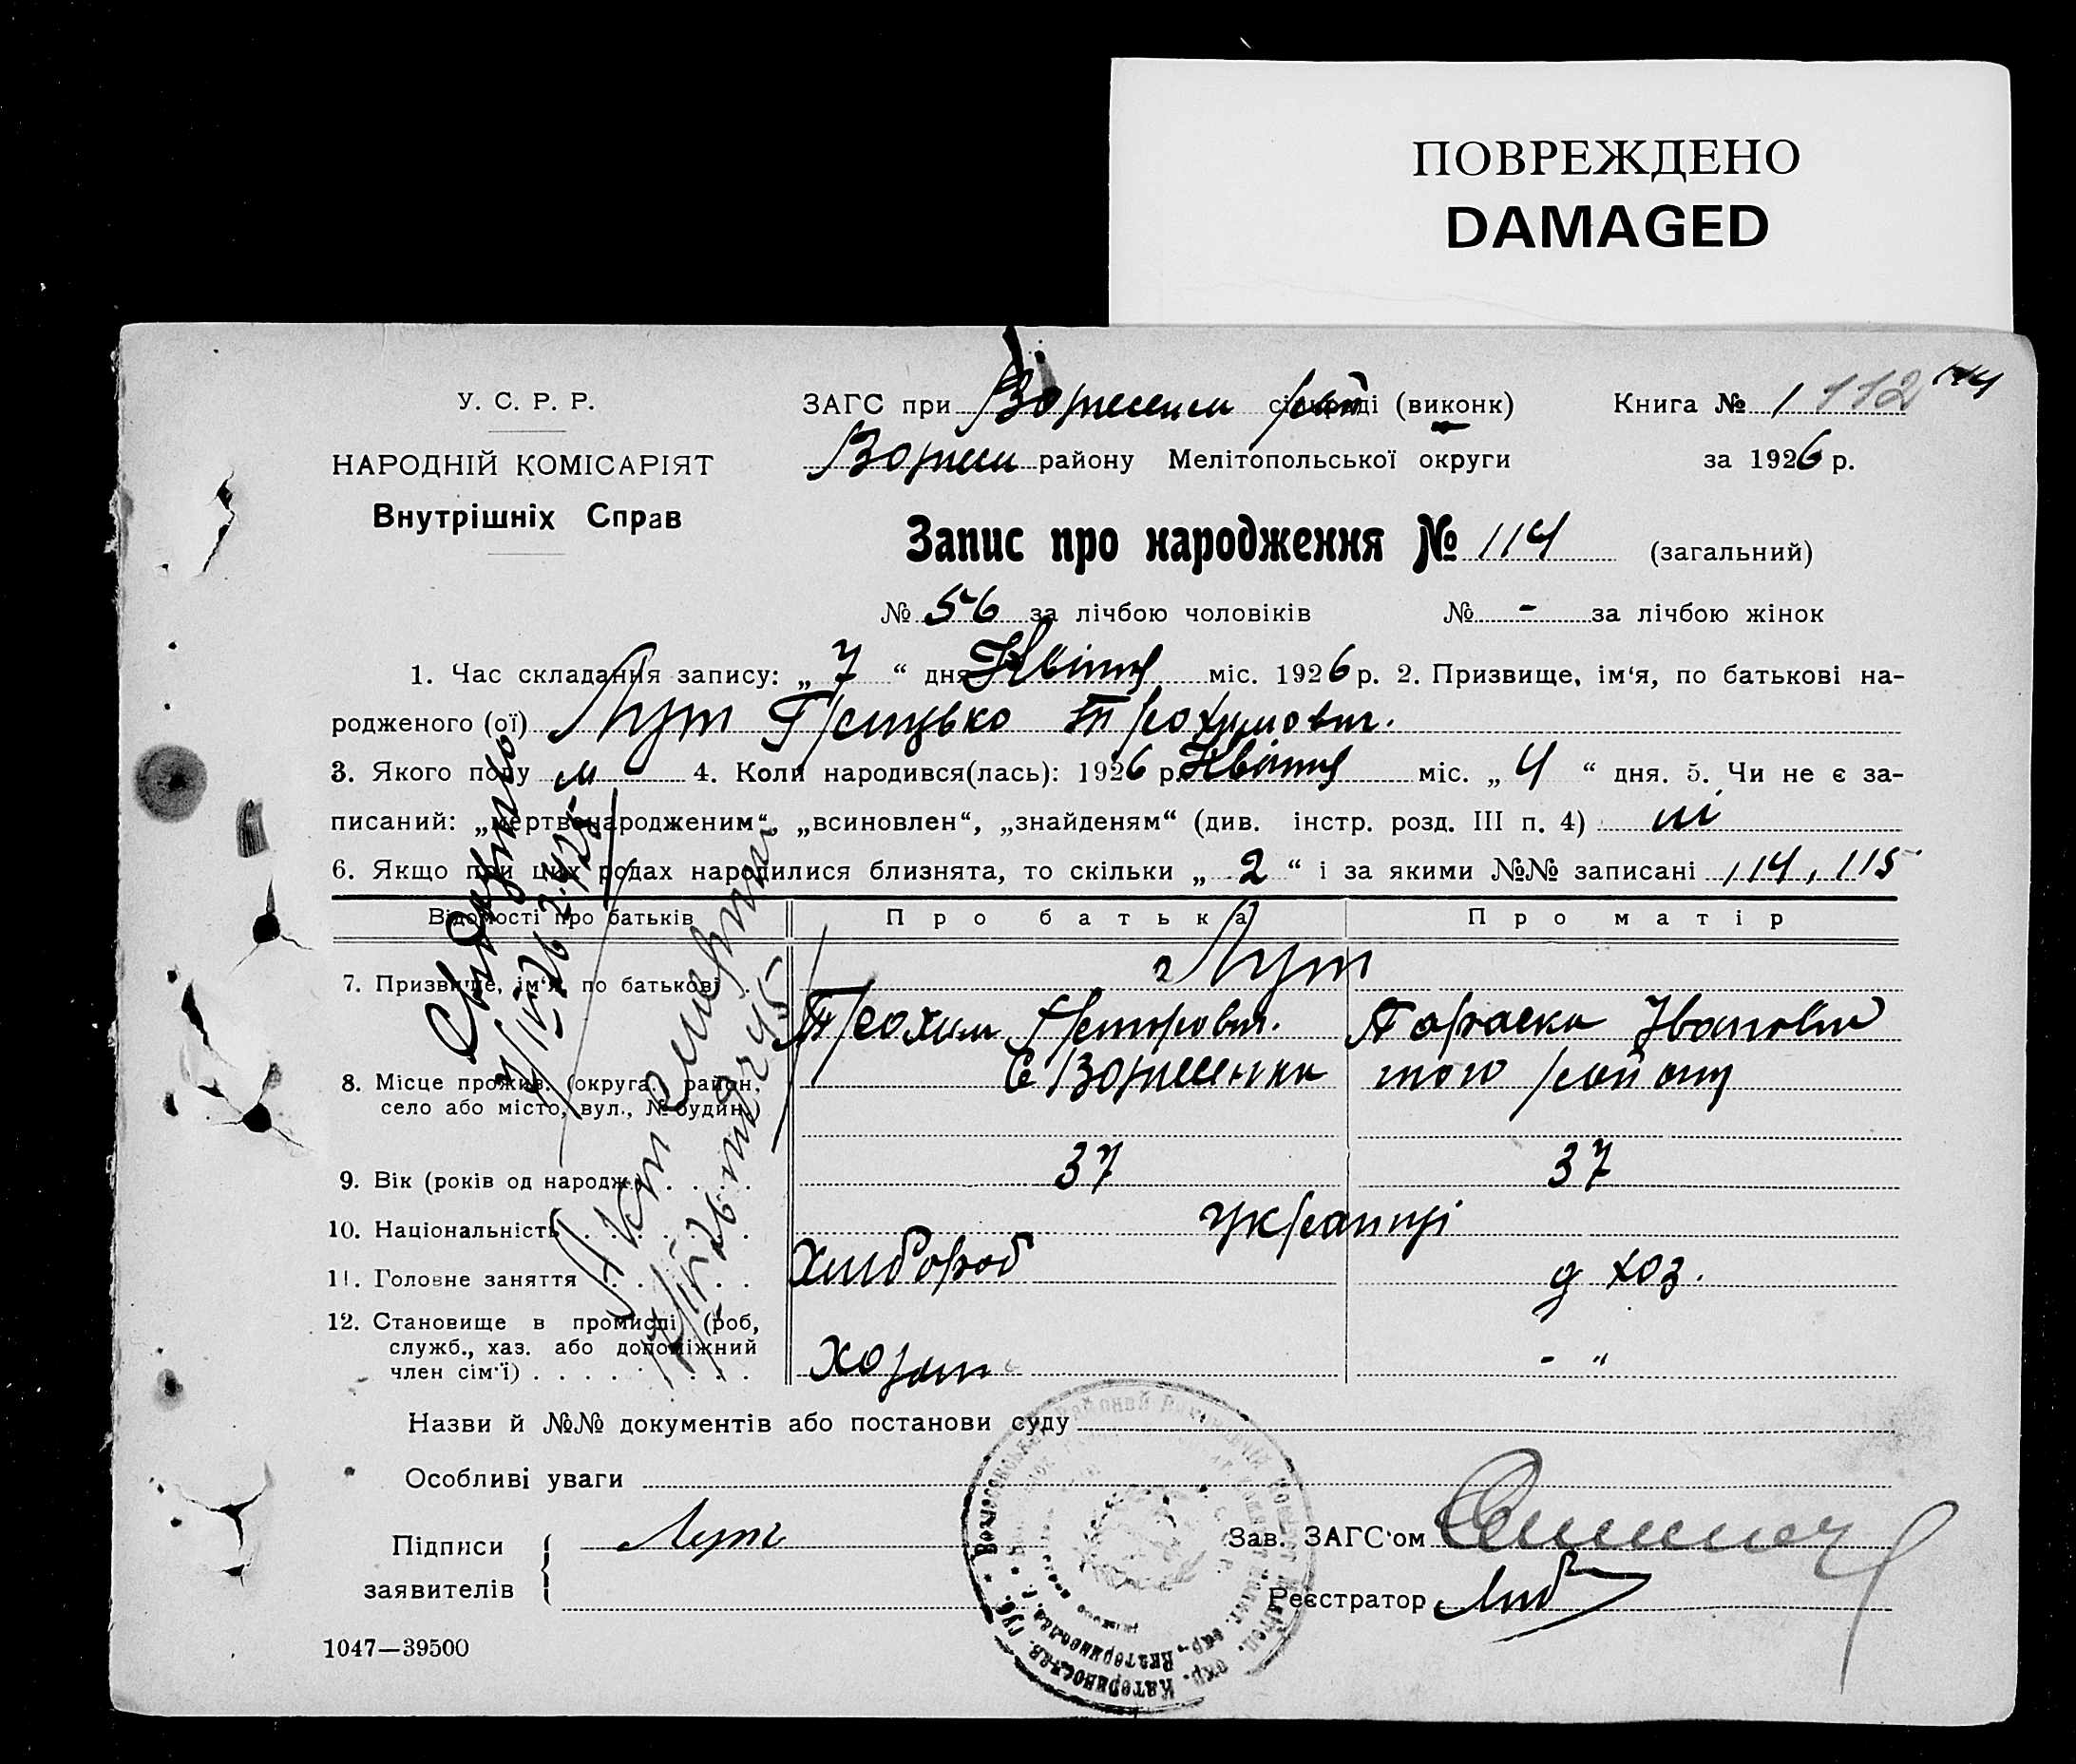 ПОВРЕЖДЕНО
DAMAGED
У. С. Р. Р.
НАРОДНІЙ КОМІСАРІЯТ
Внутрішніх Справ
ЗАГС при сільраді (виконк) Книга № 1 112 114
району Мелітопольської округи за 1926 р.
Запис про народження № 114 (загальний)
№ 56 за лічбою чоловіків № - за лічбою жінок
1. Час складання запису: „ 7 “ дня Квітня міс. 1926 р. 2. Призвище, ім‘я, по батькові на-
родженого (ої) Лут Грицько Трохимович.
3. Якого полу м 4. Коли народився(лась): 1926 р. Квітня міс. „ 4 “ дня. 5. Чи не є за-
писаний: „мертвонародженим“, „всиновлен“, „знайденям“ (див. інстр. розд. III п. 4) ні
6. Якщо при цих родах народилися близнята, то скільки „ 2 “ і за якими №№ записані 114, 115
Відомості про батьків Про батька Про матір
7. Призвище, ім‘я, по батькові . Лут
Трохим Петрович. Параска Іванівна
8. Місце прожив. (округа, район, село або місто, вул., № будин.) с Вознесенка того району
9. Вік (років од народж.) . . . . 37 37
10. Національність . . . . . українці
11. Головне заняття . . . . . Хлібороб д хоз.
12. Становище в промислі (роб, служб., хаз. або допоміжний член сім‘ї) . . . . . . . . . Хозяин - "
Назви й №№ документів або постанови суду
Особливі уваги
Підписи
заявителів
Лут
Зав. ЗАГС‘ом
Реєстратор
1047—39500